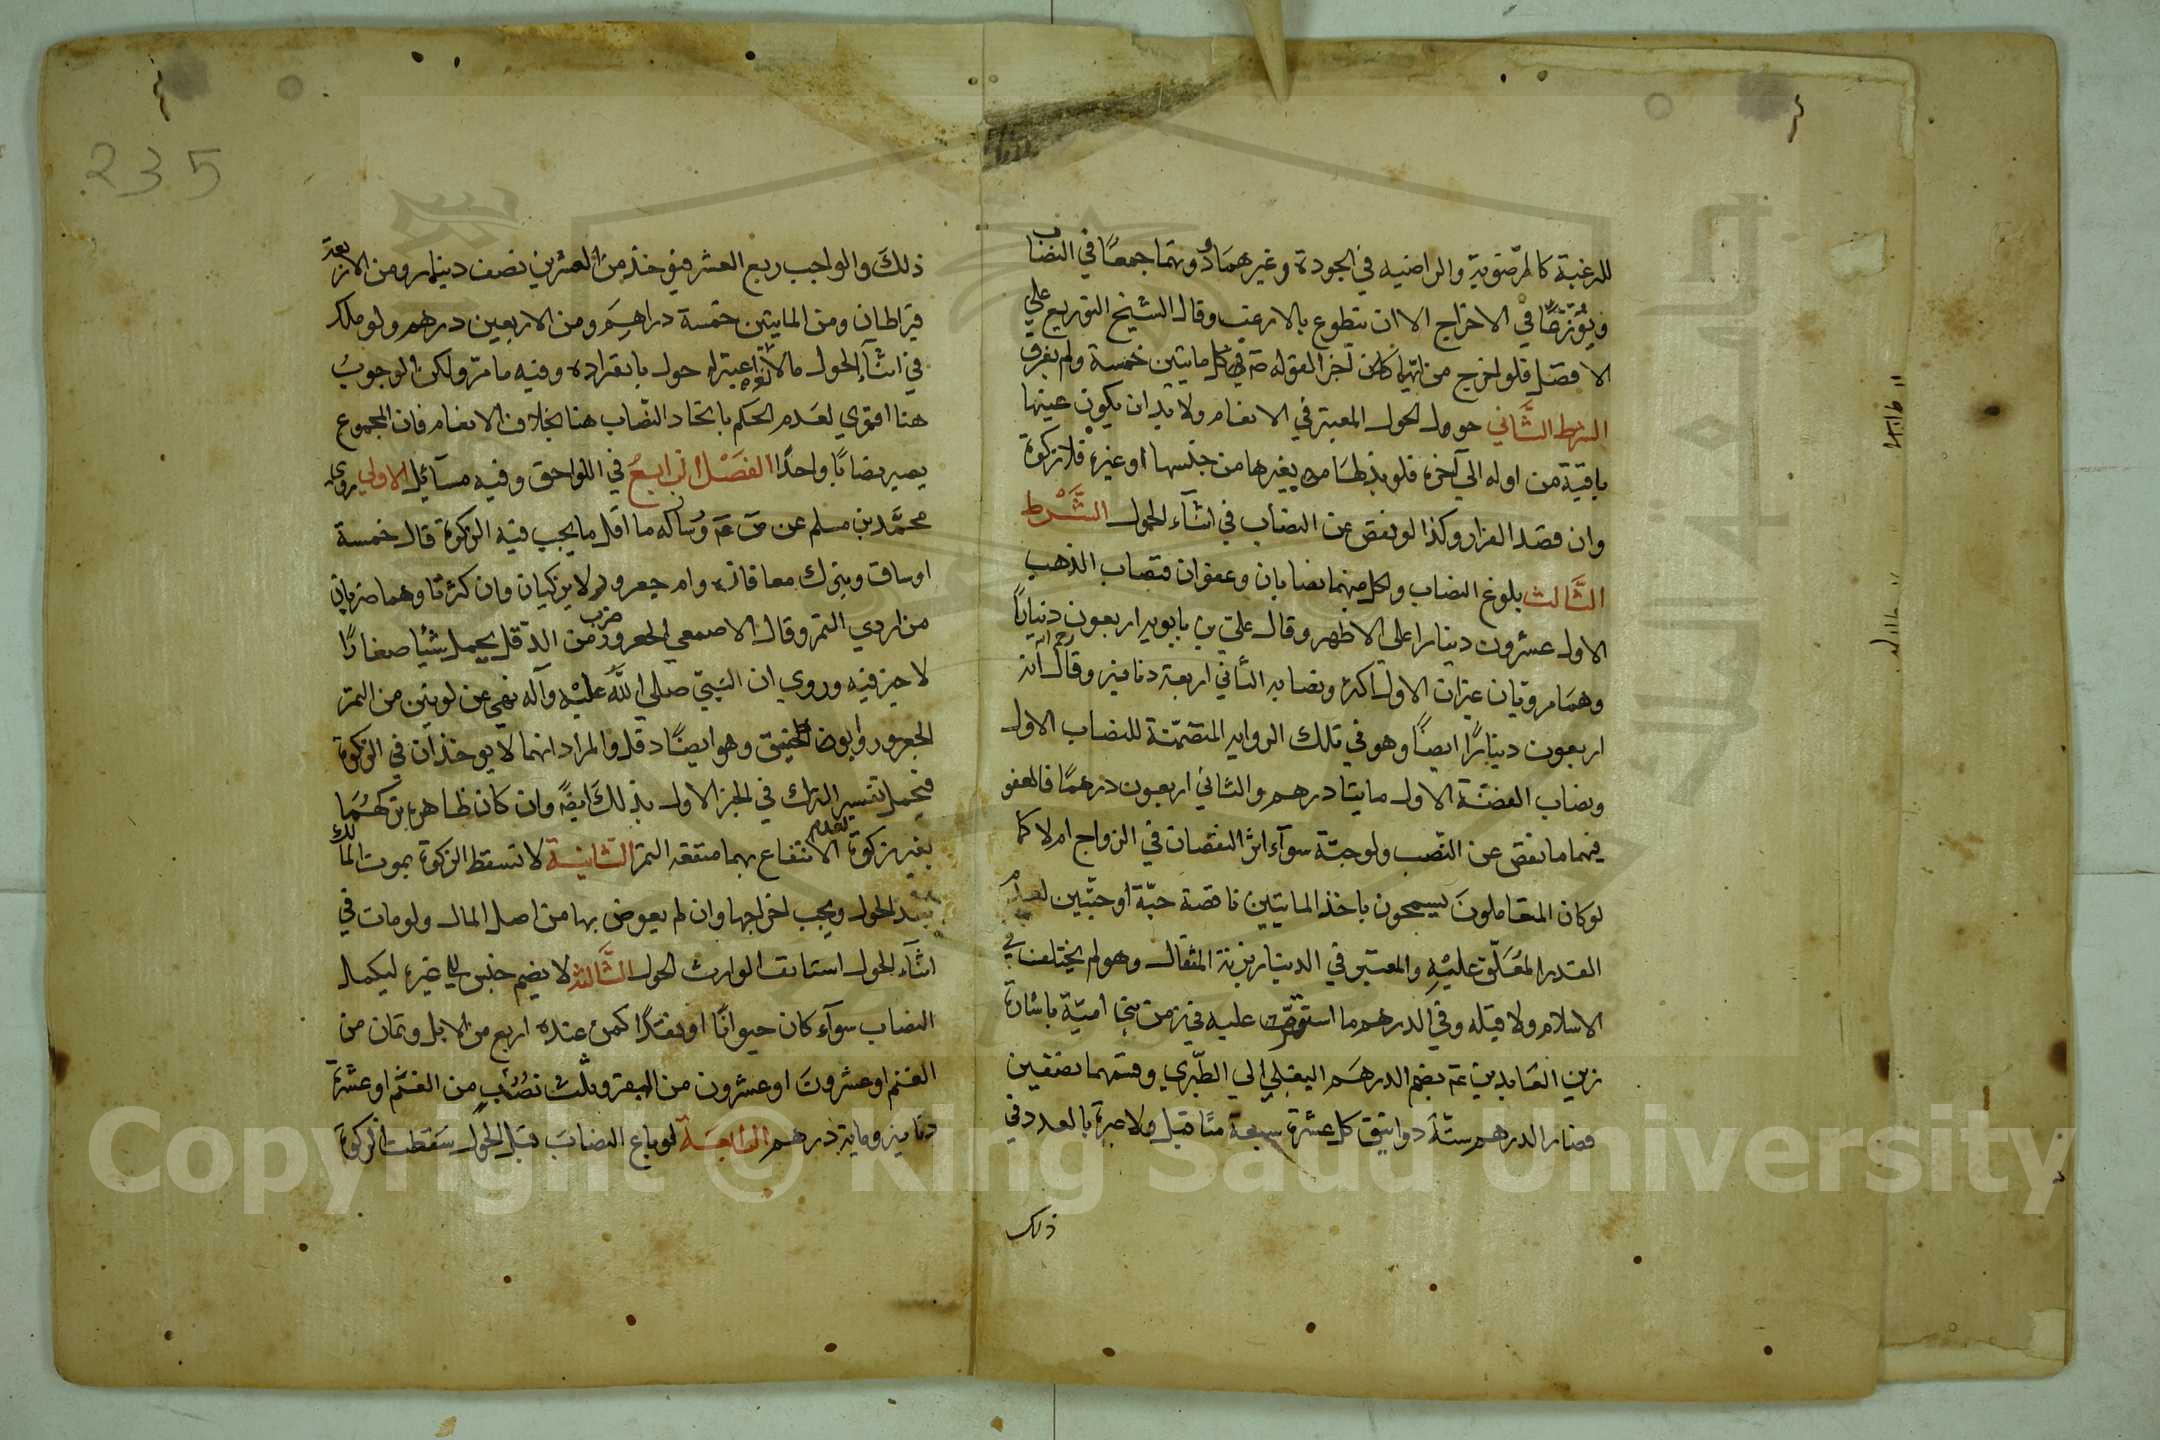 للرغبة كالرضوية والراضيه في الجودة وغيرهما دونهما جمعًا في النصاب
في الاخراج الا ان يتطوع بالارغب وقال الشيخ التوزيع علي
الافضل فلو اخرج من ايهما كان اجزا لقوله ع في كل مايتين خمسة ولم يفرق
الشرط الثَّاني حوول الحول المعتبر في الانعام ولا بد ان يكون عينها
باقية من اوله الي آخره فلو بادلها بغيرها من جنسها او غيره فلا زكوة
وان قصد الفرار وكذا لو نقص عن النصاب في اثنآء الحول الشَّرط
الثَّالث بلوغ النصاب ولكل منهما نصابان وعفوان فنصاب الذهب
الاول عشرون دينارا علي الاظهر وقال علي بن بابويه اربعون دينارًا
وهما مرويان غير ان الاول اكثر ونصابه الثاني اربعة دنانير وقال رحمه الله انه
اربعون دينارًا ايضًا وهو في تلك الروايه المتضمّنة للنصاب الاول
ونصاب الفضّة الاول مايتا درهم والثاني اربعون درهمًا فالعفو
فيهما ما نقص عن النصب ولو حبّة سوآء اثر النقصان في الرواج ام لا كما
لو كان المتعاملون يسمحون باخذ المايتين ناقصة حبّة او حبّتين لعدم
القدر المُعَلّق عليْه والمعتبر في الدينار بزنة المثقال وهو لم يختلف في
الاسلام ولا قبله وفي الدرهم ما استقرّ عليه في زمن بني اميّة باشارة
زين العَابدين ع بضم الدرهَم البغلي إلي الطّبري وقسمهما نصفين
فصار الدرهم ستّة دوانيق كل عشرة سبعة مثاقيل ولا عبرة بالعدد في
ذلك
ذلكَ والواجب ربع العشر فيؤخذ من العشرين نصف دينار ومن الاربعة
قيراطان ومن المايتين خمسة دراهِمَ ومن الاربعين درهم ولو ملك
في اثنآء الحول مالا اخر اعتبر له حول بانفراده وفيه ما مرّ ولكن الوجوبُ
هنا اقوي لعَدم الحَكم باتحاد النّصاب هنا بخلاف الانعام فان المجموع
يصير نصابًا واحدًا الفصَل الرابعُ في اللواحق وفيه مسآئل الاولي روي
محمَّد بن مسلم عن ص ع وسأله ما اقل ما يجب فيه الزكوة قال خمسة
اوساق ويترك معافاره وام جعرور لا يزكيان وان كثرتا وهما ضربان
من اردي التمر وقال الاصمعي الجعرور ضرب من الدّقل يحمل شيئا صغارًا
لا خير فيه وروي ان النبيّ صلي الله عليْه وآله نهي عن لونين من التمر
الجعرور ولون الحبيق وهو ايضًا دقل والمراد انهما لا يوخذان في الزكوة
فيحمل تفسير الترك في الخبر الاول بذلكَ ايضًا وان كان ظاهره تركهُمَا
بغير زكوة لعدم الانتفاع بهما منفعة التمر الثانيَة لا تسقط الزكوة بموت المالك
بعد الحول ويجب اخراجها وان لم يوص بها من اصل المال ولو مات في
اثنآء الحول استانف الوارث الحول الثَّالثة لا يضم جنس الي غيره ليكمل
النصاب سوآء كان حيوانًا او نقدًا كمن عنده اربع من الابل وثمان من
الغنم او عشرونَ او عشرون من البقر وثلث نصُبٍ من الغنَم او عشرة
دنانير وماية درهم الرابعَة لو باع النصابَ قبل الحول سَقطت الزكوة
235
Copyright © King Saud University